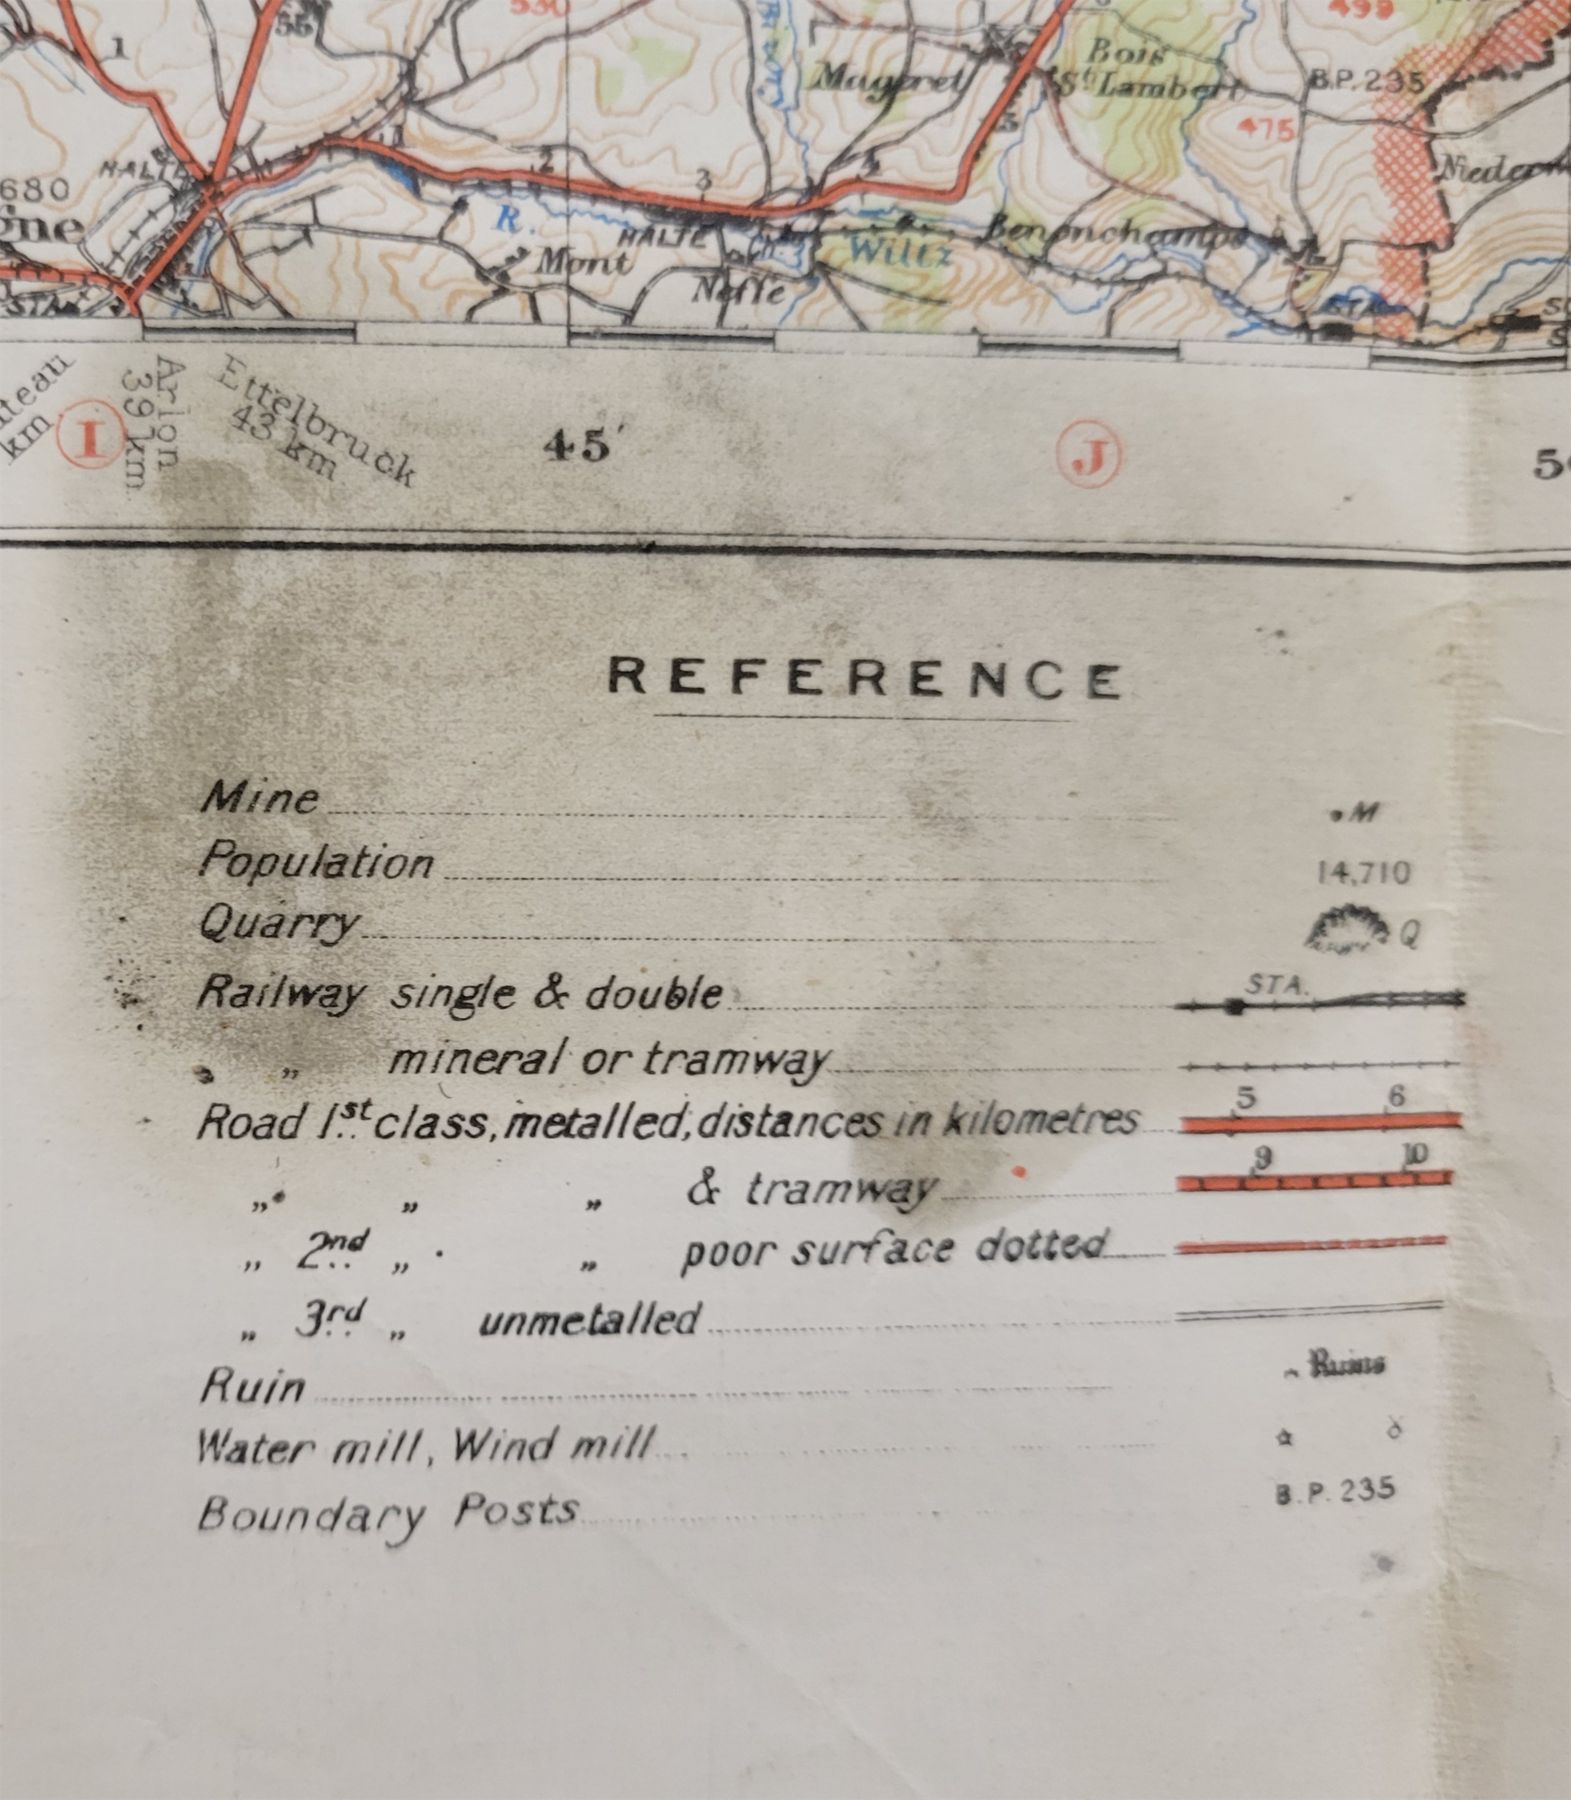 1
55
530
R
499
Mageret
Bois
St Lambert
B.P. 235
475
HALTE
680
1
2
3
4
5
R.
HALTE
Mont
Neffe
Ch.
Wiltz
Benonchamps
STA.
STA.
Arlon
39 km.
Ettelbruck
43 km
km
I
45'
J
REFERENCE
Mine • M
Population 14,710
Quarry Q
Railway single & double STA.
„ mineral or tramway
Road 1st class, metalled, distances in kilometres 5 6
„ „ „ & tramway 9 10
„ 2nd „ „ poor surface dotted
„ 3rd „ unmetalled
Ruin Ruins
Water mill, Wind mill
Boundary Posts B.P. 235